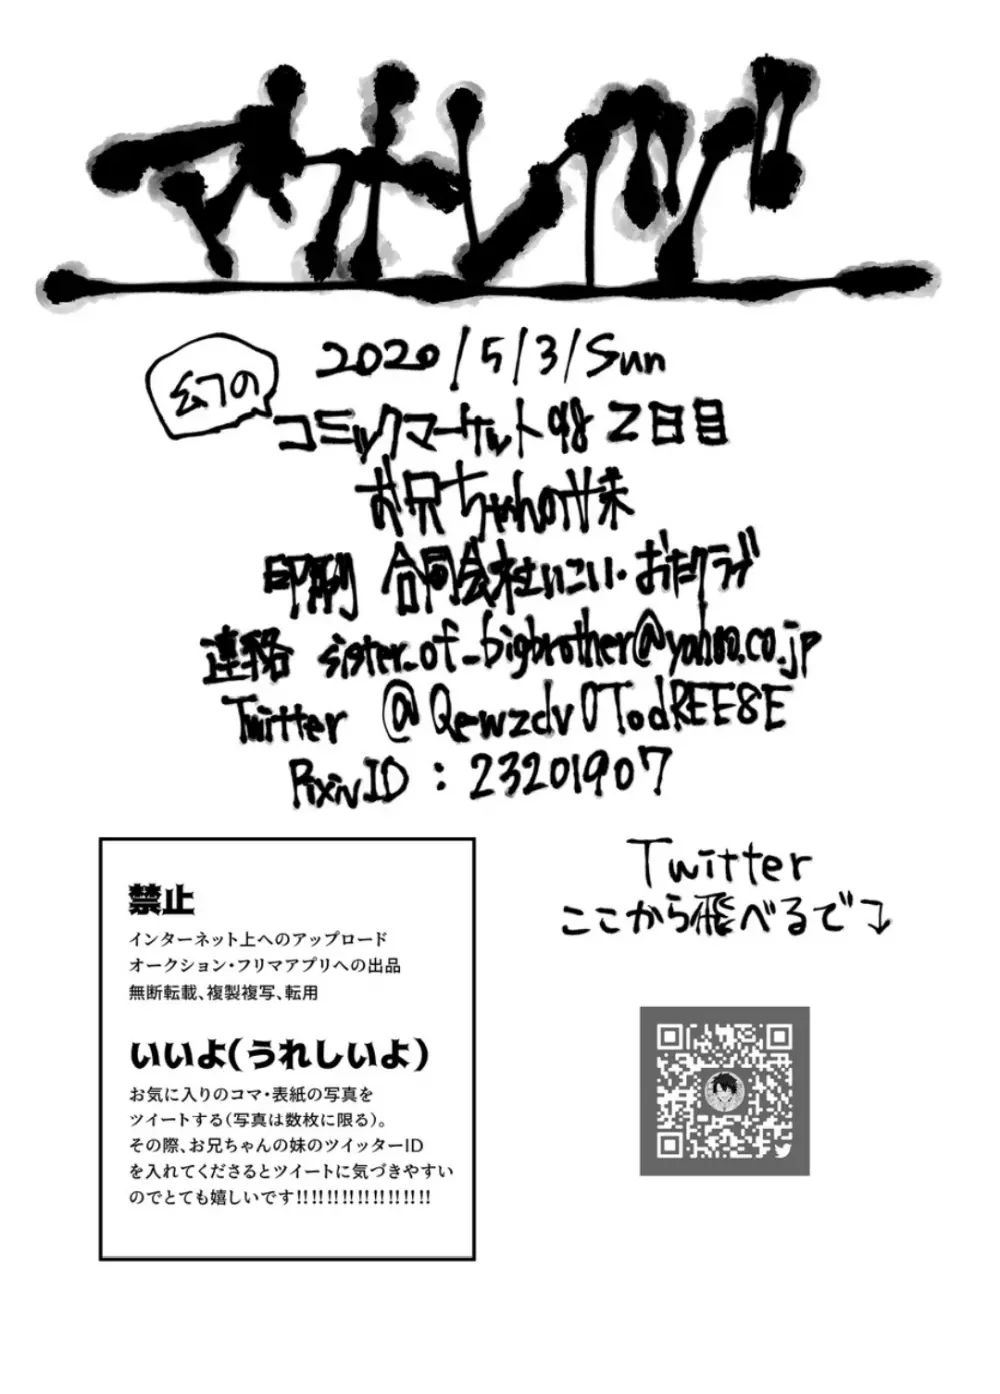 アオレンジ
2020/5/3/Sun
幻の
コミックマーケット98 2日目
お兄ちゃんの妹
印刷 合同会社いこい・おたクラブ
連絡 sister_of_bigbrother@yahoo.co.jp
Twitter @Qewzdv0TodREE8E
PixivID : 23201907
禁止
インターネット上へのアップロード
オークション・フリマアプリへの出品
無断転載、複製複写、転用
いいよ(うれしいよ)
お気に入りのコマ・表紙の写真を
ツイートする(写真は数枚に限る)。
その際、お兄ちゃんの妹のツイッターID
を入れてくださるとツイートに気づきやすい
のでとても嬉しいです!!!!!!!!!!!!!!!!!!
Twitter
ここから飛べるで⤵